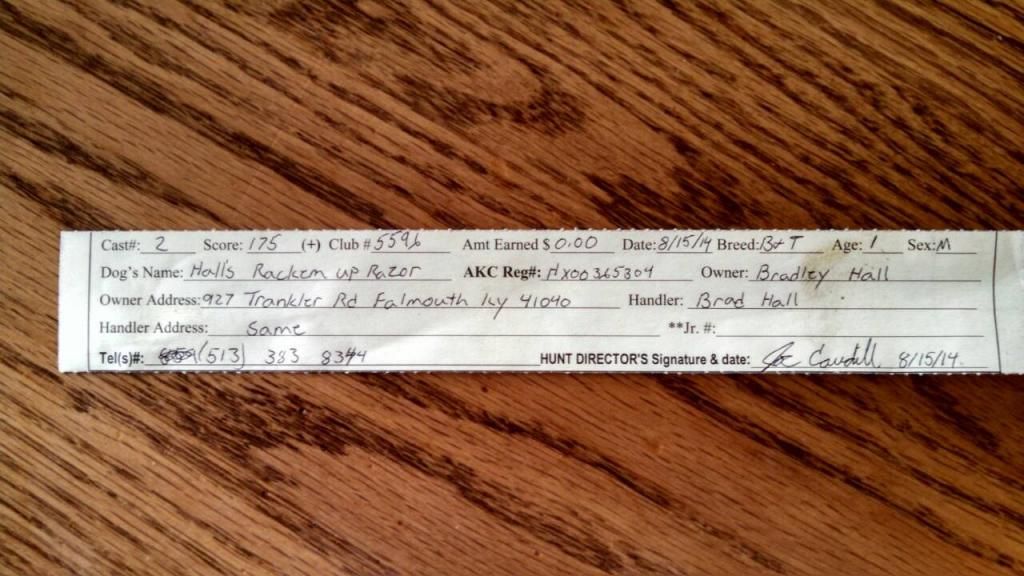 Cast#: 2 Score: 175 (+) Club # 5596 Amt Earned $ 0.00 Date: 8/15/14 Breed: B+T Age: 1 Sex: M
Dog's Name: Hall's Rackem up Razor AKC Reg#: HX00365304 Owner: Bradley Hall
Owner Address: 927 Trankler Rd Falmouth Ky 41040 Handler: Brad Hall
Handler Address: Same **Jr. #:
Tel(s)#: (513) 383 8344 HUNT DIRECTOR'S Signature & date: Joe Caudill 8/15/14